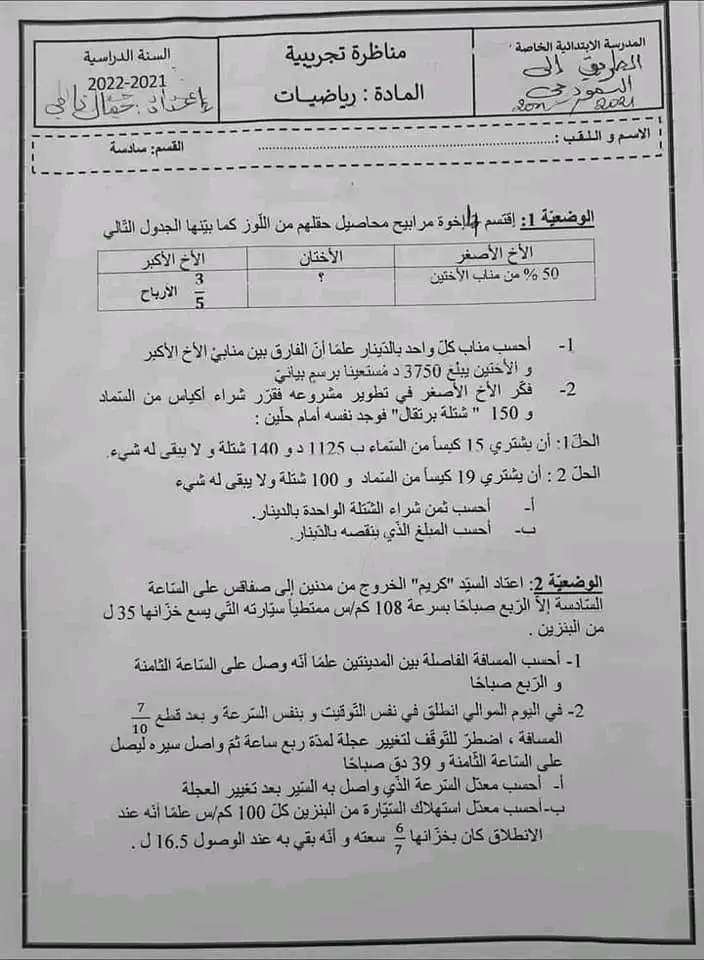 المدرسة الابتدائية الخاصة
الطريق إلى
النموذجي
2021
مناظرة تجريبية
المادة : رياضيات
السنة الدراسية
2021-2022
إعداد :
الاسم و اللقب : ............................................
القسم: سادسة
الوضعيّة 1: إقتسم 4 إخوة مرابيح محاصيل حقلهم من اللّوز كما بيّنها الجدول التّالي
الأخ الأصغر الأختان الأخ الأكبر
50 % من مناب الأختين ؟ 3/5 الأرباح
1- أحسب مناب كلّ واحد بالدّينار علمًا أنّ الفارق بين منابيْ الأخ الأكبر
و الأختين يبلغ 3750 د مُستعينا برسمٍ بيانيّ
2- فكّر الأخ الأصغر في تطوير مشروعه فقرّر شراء أكياس من السّماد
و 150 " شتلة برتقال" فوجد نفسه أمام حلّين :
الحلّ1: أن يشتري 15 كيساً من السّماء ب 1125 د و 140 شتلة و لا يبقى له شيء.
الحلّ 2 : أن يشتري 19 كيساً من السّماد و 100 شتلة ولا يبقى له شيء
أ- أحسب ثمن شراء الشّتلة الواحدة بالدينار.
ب- أحسب المبلغ الذّي ينقصه بالدّينار.
الوضعيّة 2: اعتاد السيّد "كريم" الخروج من مدنين إلى صفاقس على السّاعة
السّادسة إلاّ الرّبع صباحًا بسرعة 108 كم/س ممتطياً سيّارته التّي يسع خزّانها 35 ل
من البنزين .
1- أحسب المسافة الفاصلة بين المدينتين علمًا أنّه وصل على السّاعة الثامنة
و الرّبع صباحًا
2- في اليوم الموالي انطلق في نفس التّوقيت و بنفس السّرعة و بعد قطع 7/10
المسافة ، اضطرّ للتّوقّف لتغيير عجلة لمدّة ربع ساعة ثمّ واصل سيره ليصل
على السّاعة الثّامنة و 39 دق صباحًا
أ- أحسب معدّل السّرعة الذّي واصل به السّير بعد تغيير العجلة
ب-أحسب معدّل استهلاك السّيّارة من البنزين كلّ 100 كم/س علمًا أنّه عند
الانطلاق كان بخزّانها 6/7 سعته و أنّه بقي به عند الوصول 16.5 ل .